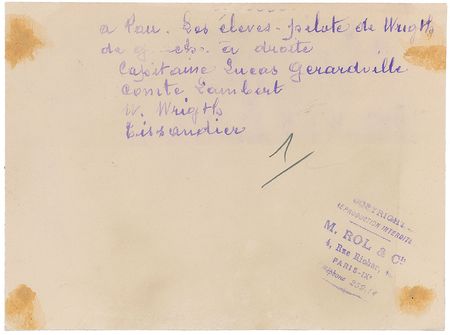 a Pau. Les élèves-pilote de Wrigth
de g—che à droite
Capitaine Lucas Gerardville
Comte Lambert
W. Wrigth
Tissandier
1
COPYRIGHT
REPRODUCTION INTERDITE
M. ROL & Cie
4, Rue Richer,
PARIS-IXe
Téléphone